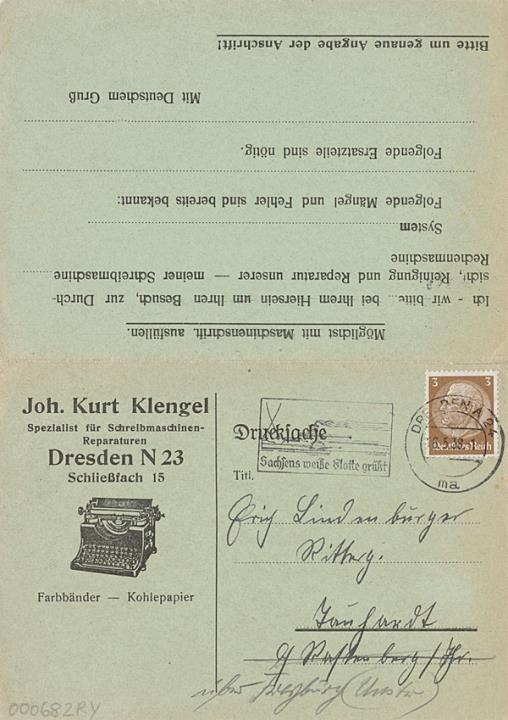 Bitte um genaue Angabe der Anschrift!
Mit Deutschem Gruß
Folgende Ersatzteile sind nötig.
Folgende Mängel und Fehler sind bereits bekannt:
System
Rechenmaschine
sicht, Reinigung und Reparatur unserer — meiner Schreibmaschine
Ich - wir bitte... bei Ihrem Hiersein um Ihren Besuch, zur Durch-
Möglichst mit Maschinenschrift ausfüllen.
Joh. Kurt Klengel
Spezialist für Schreibmaschinen-
Reparaturen
Dresden N 23
Schließfach 15
Farbbänder — Kohlepapier
Drucksache
Sachsens weiße Flotte grüßt
3 3
Deutsches Reich
DRESDEN A 24
ma
Titl.
Erich Lindenburger
Ritterg.
Tauhardt
über (Unstr.)
000682RY